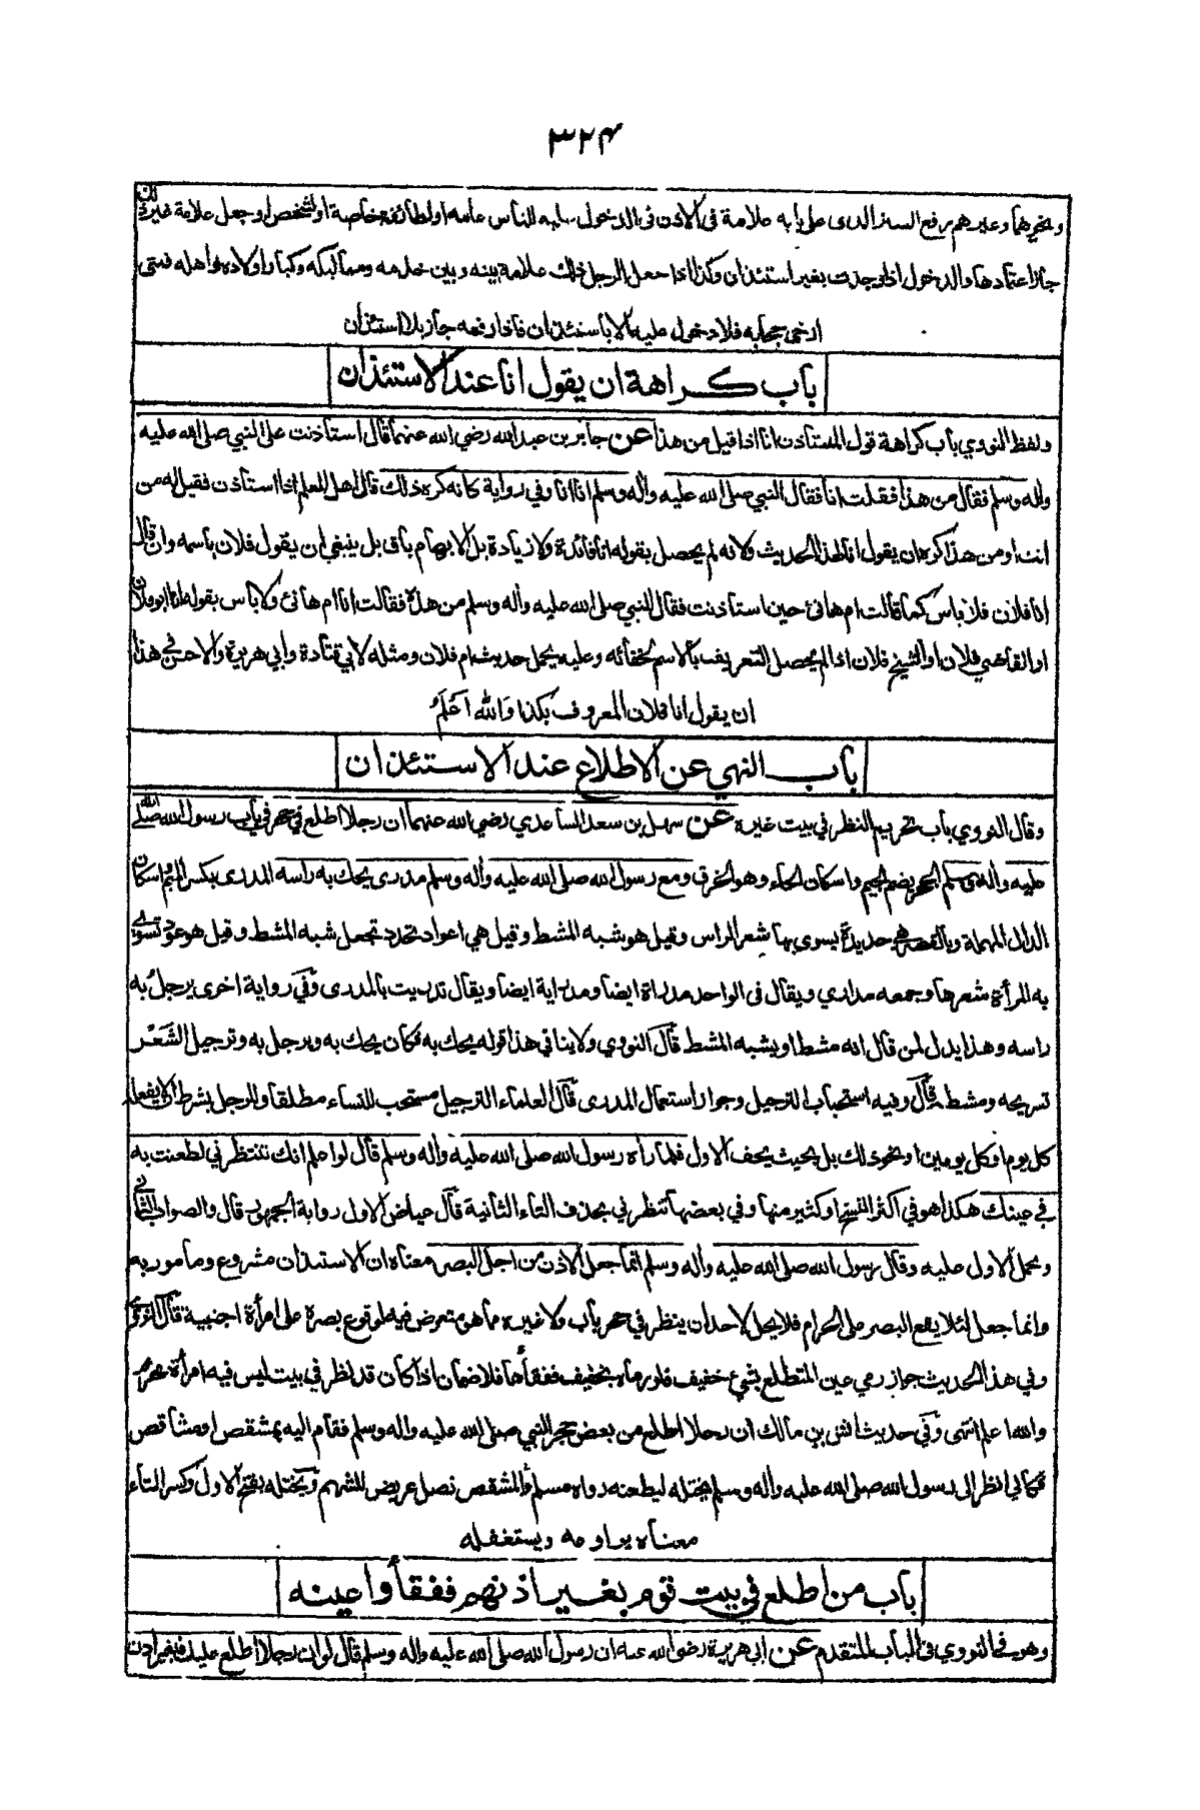 ٣٢٤
ونحوهما وغيرهم برفع الستر الذى على بابه علامة فى الاذن فى الدخول عليه للناس عامة او لطائفة خاصة او لشخص او جعل علامة غير ذلك
جاز اعتمادها والدخول اذا وجدت بغير استئذان وكذا اذا جعل الرجل ذلك علامة بينه وبين خدمه ومماليكه وكبار اولاده واهله فمتى
ارخى حجابه فلا دخول عليه الا باستئذان فاذا رفعه جاز بلا استئذان
باب كراهة ان يقول انا عند الاستئذان
ولفظ النووي باب كراهة قول المستاذن انا اذا قيل من هذا عن جابر بن عبد الله رضي الله عنهما قال استاذنت على النبي صلى الله عليه
واله وسلم فقال من هذا فقلت انا فقال النبي صلى الله عليه واله وسلم انا انا وفي رواية كانه كره ذلك قال اهل العلم اذا استاذن فقيل له من
انت او من هذا كره ان يقول انا لهذا الحديث ولانه لم يحصل بقوله انا فائدة ولا زيادة بل الابهام باق بل ينبغي ان يقول فلان باسمه وان قال
انا فلان فلا باس كما قالت ام هانئ حين استاذنت فقال النبي صلى الله عليه واله وسلم من هذه فقالت انا ام هانئ ولا باس بقوله انا ابو فلان
او القاضي فلان او الشيخ فلان اذا لم يحصل التعريف بالاسم لخفائه وعليه يحمل حديث ام فلان ومثله لابي قتادة وابي هريرة والاحسن في هذا
ان يقول انا فلان المعروف بكذا والله اعلم
باب النهي عن الاطلاع عند الاستئذان
وقال النووي باب تحريم النظر في بيت غيره عن سهل بن سعد الساعدي رضي الله عنهما ان رجلا اطلع في جحر في باب رسول الله صلى الله
عليه واله وسلم الجحر بضم الجيم واسكان الحاء وهو الخرق ومع رسول الله صلى الله عليه واله وسلم مدرى يحك به راسه المدرى بكسر الميم واسكان
الدال المهملة وبالقصر هي حديدة يسوى بها شعر الراس وقيل هو شبه المشط وقيل هي اعواد تحدد تجعل شبه المشط وقيل هو عود تسوي
به المرأة شعرها وجمعه مداري ويقال فى الواحد مدراة ايضا ومدراية ايضا ويقال تدريت بالمدرى وفي رواية اخرى يرجل به
راسه وهذا يدل لمن قال انه مشط او يشبه المشط قال النووي ولا ينافي هذا قوله يحك به فكان يحك به ويرجل به وترجيل الشعر
تسريحه ومشطه قال وفيه استحباب الترجيل وجواز استعمال المدرى قال العلماء الترجيل مستحب للنساء مطلقا وللرجل بشرط ان لا يفعله
كل يوم او كل يومين او نحو ذلك بل بحيث يخف الاول فلما راه رسول الله صلى الله عليه واله وسلم قال لو اعلم انك تنتظرني لطعنت به
في عينك هكذا هو في اكثر النسخ او كثير منها وفي بعضها تنظرني بحذف التاء الثانية قال عياض الاول رواية الجمهور قال والصواب الثاني
ويحمل الاول عليه وقال رسول الله صلى الله عليه واله وسلم انما جعل الاذن من اجل البصر معناه ان الاستئذان مشروع ومامور به
وانما جعل لئلا يقع البصر على الحرام فلا يحل لاحد ان ينظر في جحر باب ولا غيره مما هو متعرض فيه لوقوع بصره على امرأة اجنبية قال النووي
وفي هذا الحديث جواز رمي عين المتطلع بشيء خفيف فلو رماه بخفيف ففقأها فلا ضمان اذا كان قد نظر في بيت ليس فيه امرأة محرم
والله اعلم انتهى وفي حديث انس بن مالك ان رجلا اطلع من بعض حجر النبي صلى الله عليه واله وسلم فقام اليه بمشقص او مشاقص
فكاني انظر الى رسول الله صلى الله عليه واله وسلم يختله ليطعنه رواه مسلم والمشقص نصل عريض للسهم ويختله بفتح الاول وكسر التاء
معناه يراوغه ويستغفله
باب من اطلع في بيت قوم بغير اذنهم ففقأوا عينه
وهو في النووي فى الباب المتقدم عن ابي هريرة رضى الله عنه ان رسول الله صلى الله عليه واله وسلم قال لو ان رجلا اطلع عليك بغير اذن